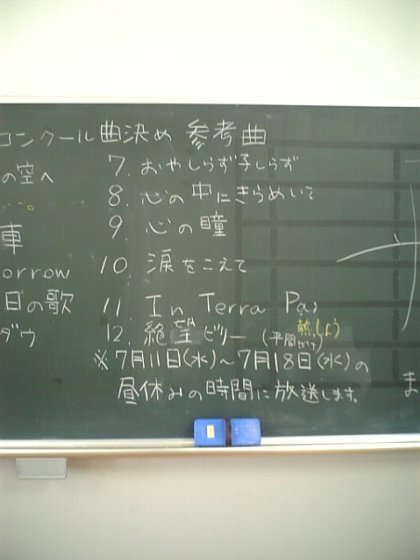 コンクール曲決め 参考曲
の空へ
車
orrow
目の歌
ダウ
7. おやしらず子しらず
8. 心の中にきらめいて
9. 心の瞳
10. 涙をこえて
11 In Terra Pax
12. 絶望ビリー (平間だけ) 熱しょう
※7月11日(水)~7月18日(水)の
昼休みの時間に放送します。
ま